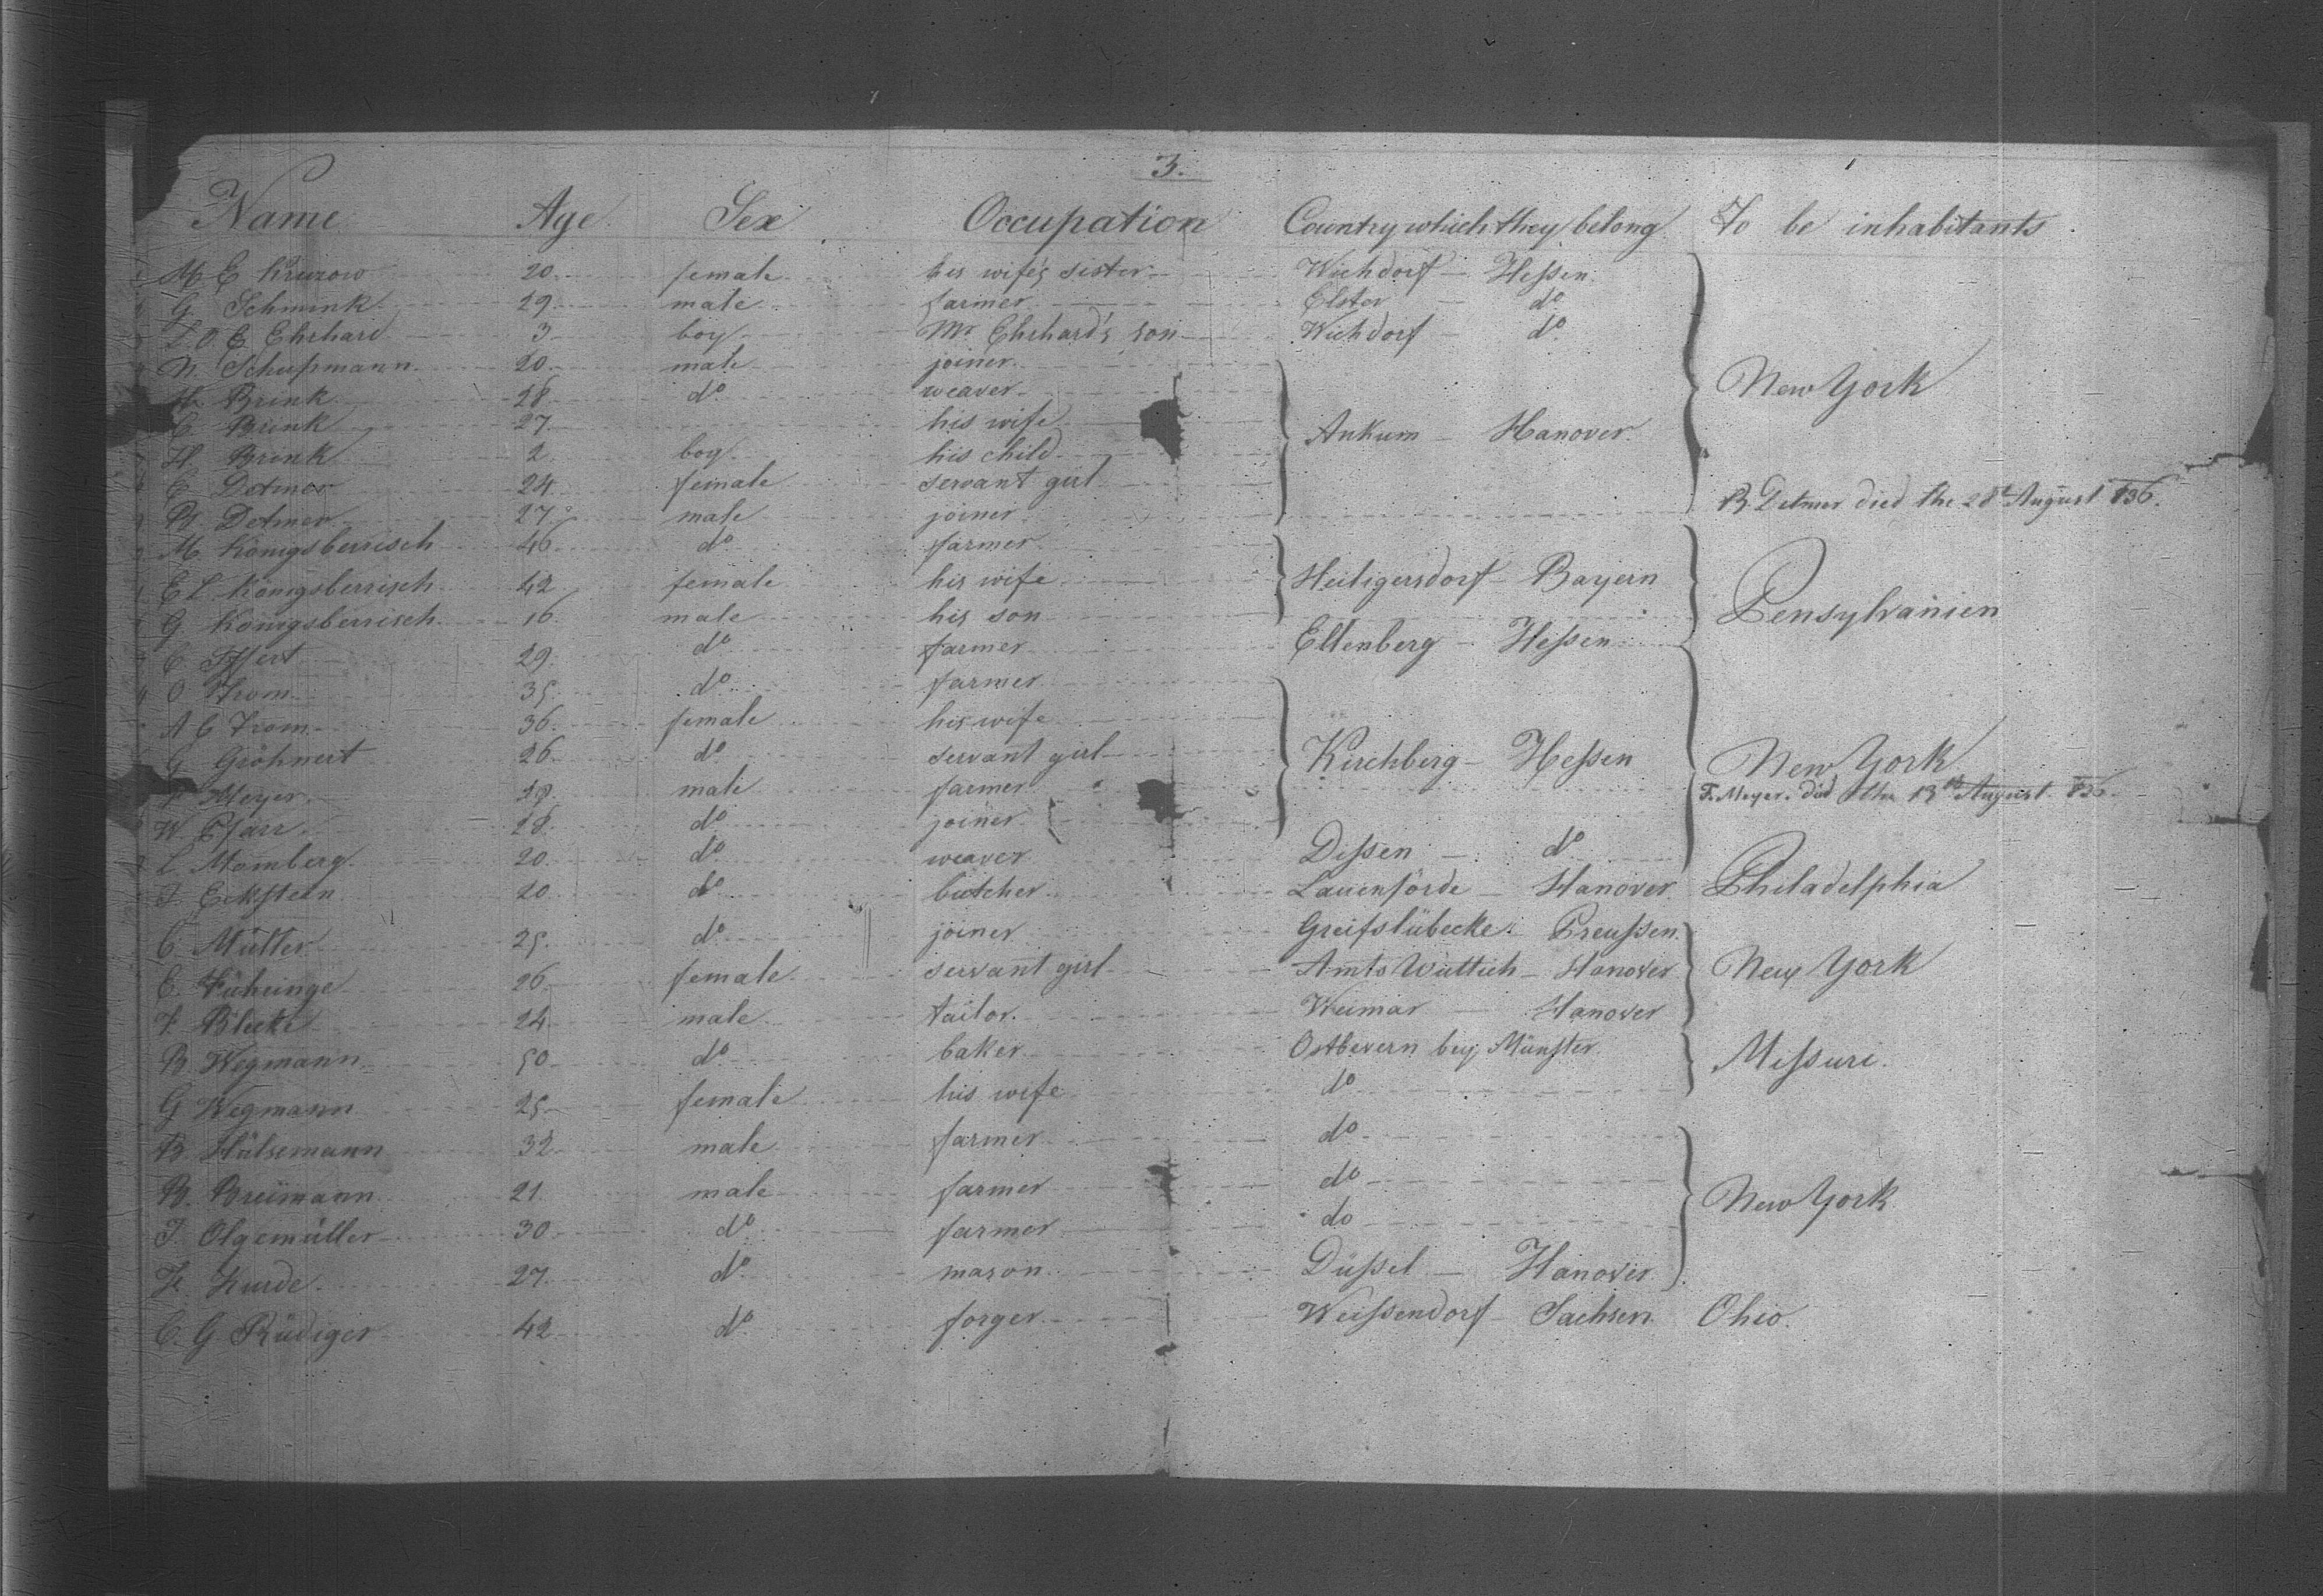 3.
Name Age Sex Occupation Country which they belong To be inhabitants
M E Kruzow 20 female his wife's sister Wichdorf Hessen
G Schmink 29 male farmer Elster do
E Ehrhard 3 boy Mr Ehrhard's son Wichdorf do
N Schupmann 20 male joiner
H Brink 28 do weaver New York
C Brink 27 his wife Ankum Hanover
H Brink 2 boy his child
C Detmer 24 female servant girl
B Detmer 27 male joiner B. Detmer died the 28t August 836.
M Königsberrisch 46 do farmer
E L Königsberrisch 42 female his wife Heiligersdorf Bayern Pensylvanien
G Königsberrisch 16 male his son
C Iffert 29 do farmer Ellenberg Hessen
O From 35 do farmer
A G From 36 female his wife
G Gröhnert 26 do servant girl Kirchberg Hessen New York
F Meyer 18 male farmer F. Meyer died the 13th August 836.
W Pfarr 28 do joiner
L Momberg 20 do weaver Dissen do
I Eckstein 20 do butcher Lauenförde Hanover Philadelphia
C Müller 25 do joiner Greifslübecke Preussen
C 26 female servant girl Amts Wittich Hanover New York
F Blecke 24 male tailor Weimar Hanover
B Wegmann 50 do baker Ostbevern bey Münster Messure.
G Wegmann 25 female his wife do
B Hülsemann 32 male farmer do
B. Breimann 21 male farmer do New York
I Olgemüller 30 do farmer do
Kurde 27 do mason Düssel Hanover
C. G Rüdiger 42 do forger Weissendorf Sachsen Ohio.